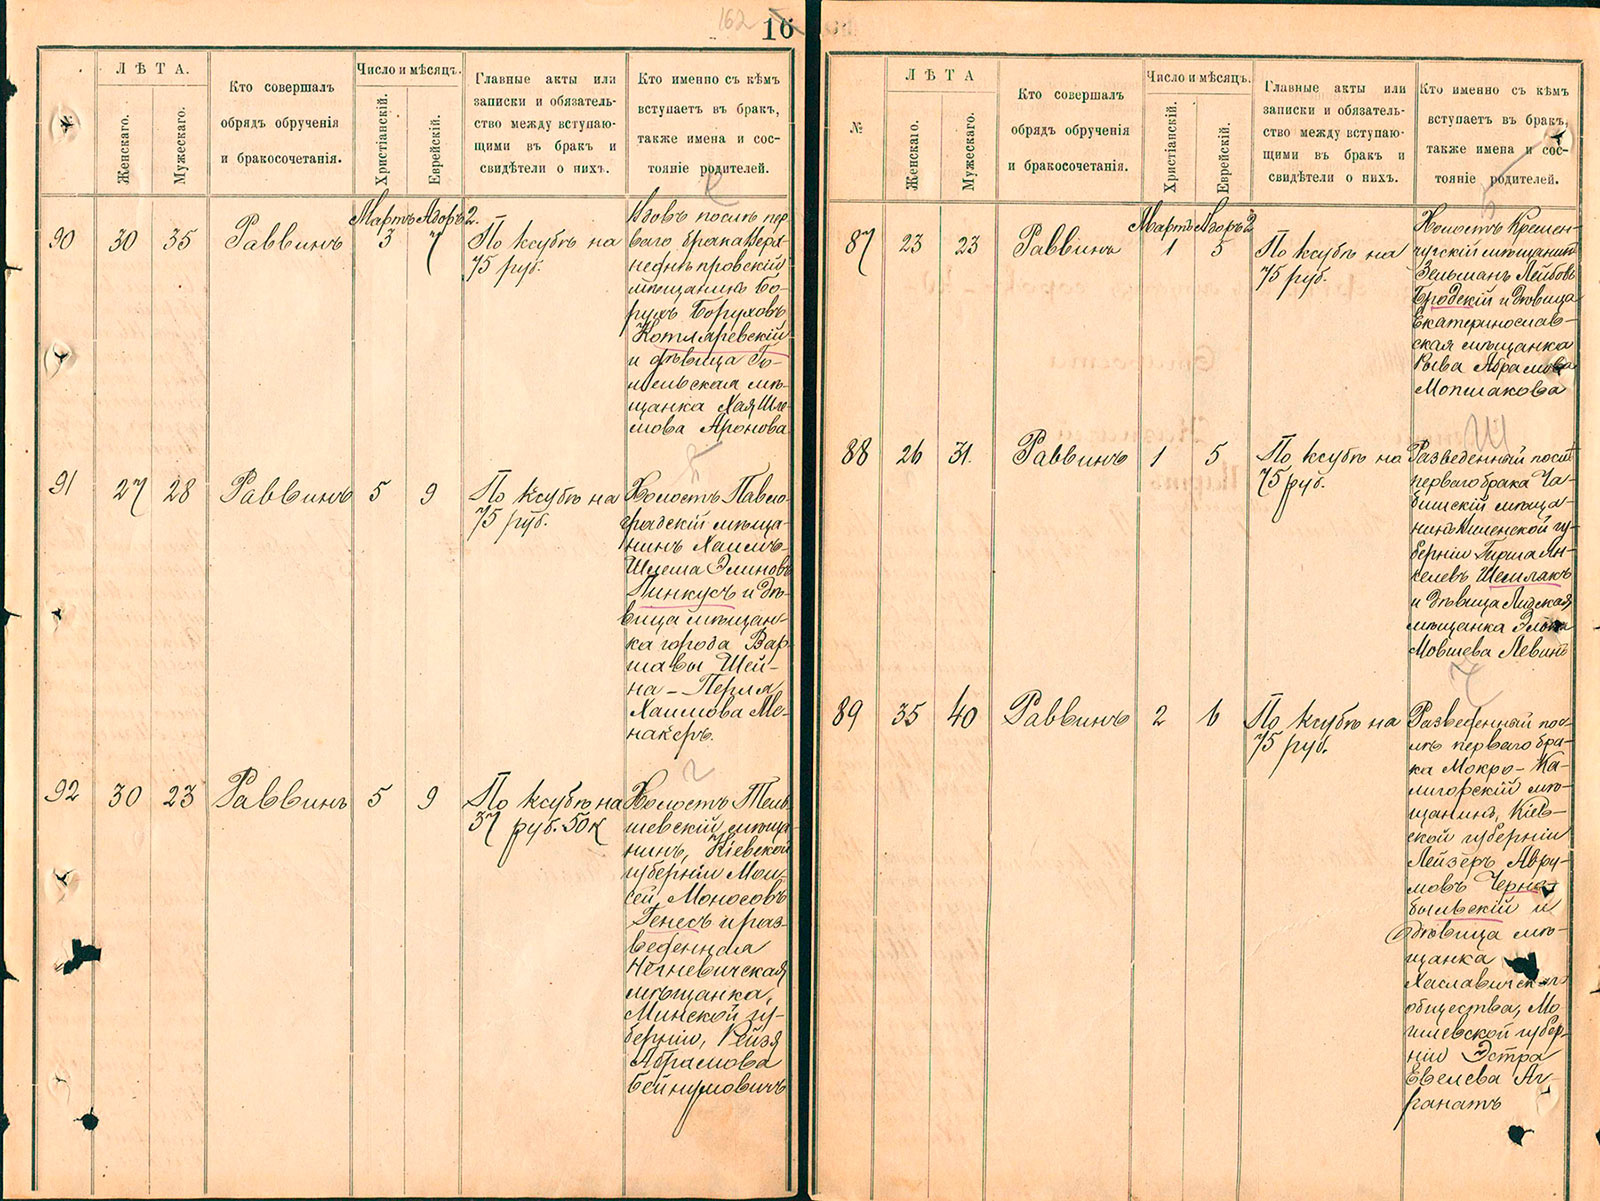 162
16
ЛѢТА.
Женскаго.
Мужескаго.
Кто совершалъ
обрядъ обрученія
и бракосочетанія.
Число и мѣсяцъ.
Христіанскій.
Еврейскій.
Главные акты или
записки и обязатель-
ство между вступаю-
щими въ бракъ и
свидѣтели о нихъ.
Кто именно съ кѣмъ
вступаетъ въ бракъ,
также имена и сос-
тояніе родителей.
90 30 35 Раввинъ
Мартъ 3
Адоръ 2. 7
По ксубѣ на
75 руб.
Вдовъ послѣ пер
ваго брака Верх-
неднѣпровскій
мѣщанинъ Бо-
рухъ Боруховъ
Котляревскій
и дѣвица Го-
мельская мѣ-
щанка Хая Шло-
мова Аронова
91 27 28 Раввинъ 5 9
По ксубѣ на
75 руб.
Холостъ Павло-
градскій мѣща-
нинъ Хаимъ-
Шлема Элиновъ
Пинкусъ и дѣ-
вица мѣщан-
ка города Вар-
шавы Шей-
на-Перля
Хаимова Ме-
накеръ.
92 30 23 Раввинъ 5 9
По ксубѣ на
37 руб. 50 к
Холостъ
шевскій мѣща-
нинъ, Кіевской
губерніи Мои-
сей Моносовъ
Генесъ и раз-
веденная
Негневичская
мѣщанка,
Минской гу-
берніи, Рейзя
Абрамова
Бейнумовичъ
№
ЛѢТА
Женскаго.
Мужескаго.
Кто совершалъ
обрядъ обрученія
и бракосочетанія.
Число и мѣсяцъ.
Христіанскій.
Еврейскій.
Главные акты или
записки и обязатель-
ство между вступаю-
щими въ бракъ и
свидѣтели о нихъ.
Кто именно съ кѣмъ
вступаетъ въ бракъ,
также имена и сос-
тояніе родителей.
87 23 23 Раввинъ
Мартъ 1
Адоръ 2 5
По ксубѣ на
75 руб.
Холостъ Кремен-
чугскій мѣщанинъ
Зельманъ Лейбовъ
Бродскій и дѣвица
Екатеринослав-
ская мѣщанка
Рыва Абрамова
Мопшакова
88 26 31. Раввинъ 1 5
По ксубѣ на
75 руб.
Разведенный послѣ
перваго брака
мѣща-
нинъ Виленской гу-
берніи Гирша Ян-
келевъ Шемлакъ
и дѣвица Лидская
мѣщанка Элька
Мовшева Левинъ
89 35 40 Раввинъ 2 6
По ксубѣ на
75 руб.
Разведенный пос-
лѣ перваго бра-
ка Мокро-Ка-
лигорскій мѣ-
щанинъ, Кіев-
ской губерніи
Лейзеръ Авру-
мовъ Черно-
быльскій и
дѣвица мѣ-
щанка
Хаславичск-го
общества, Мо-
гилевской губер-
ніи Эстра
Евелева Аг-
ранатъ